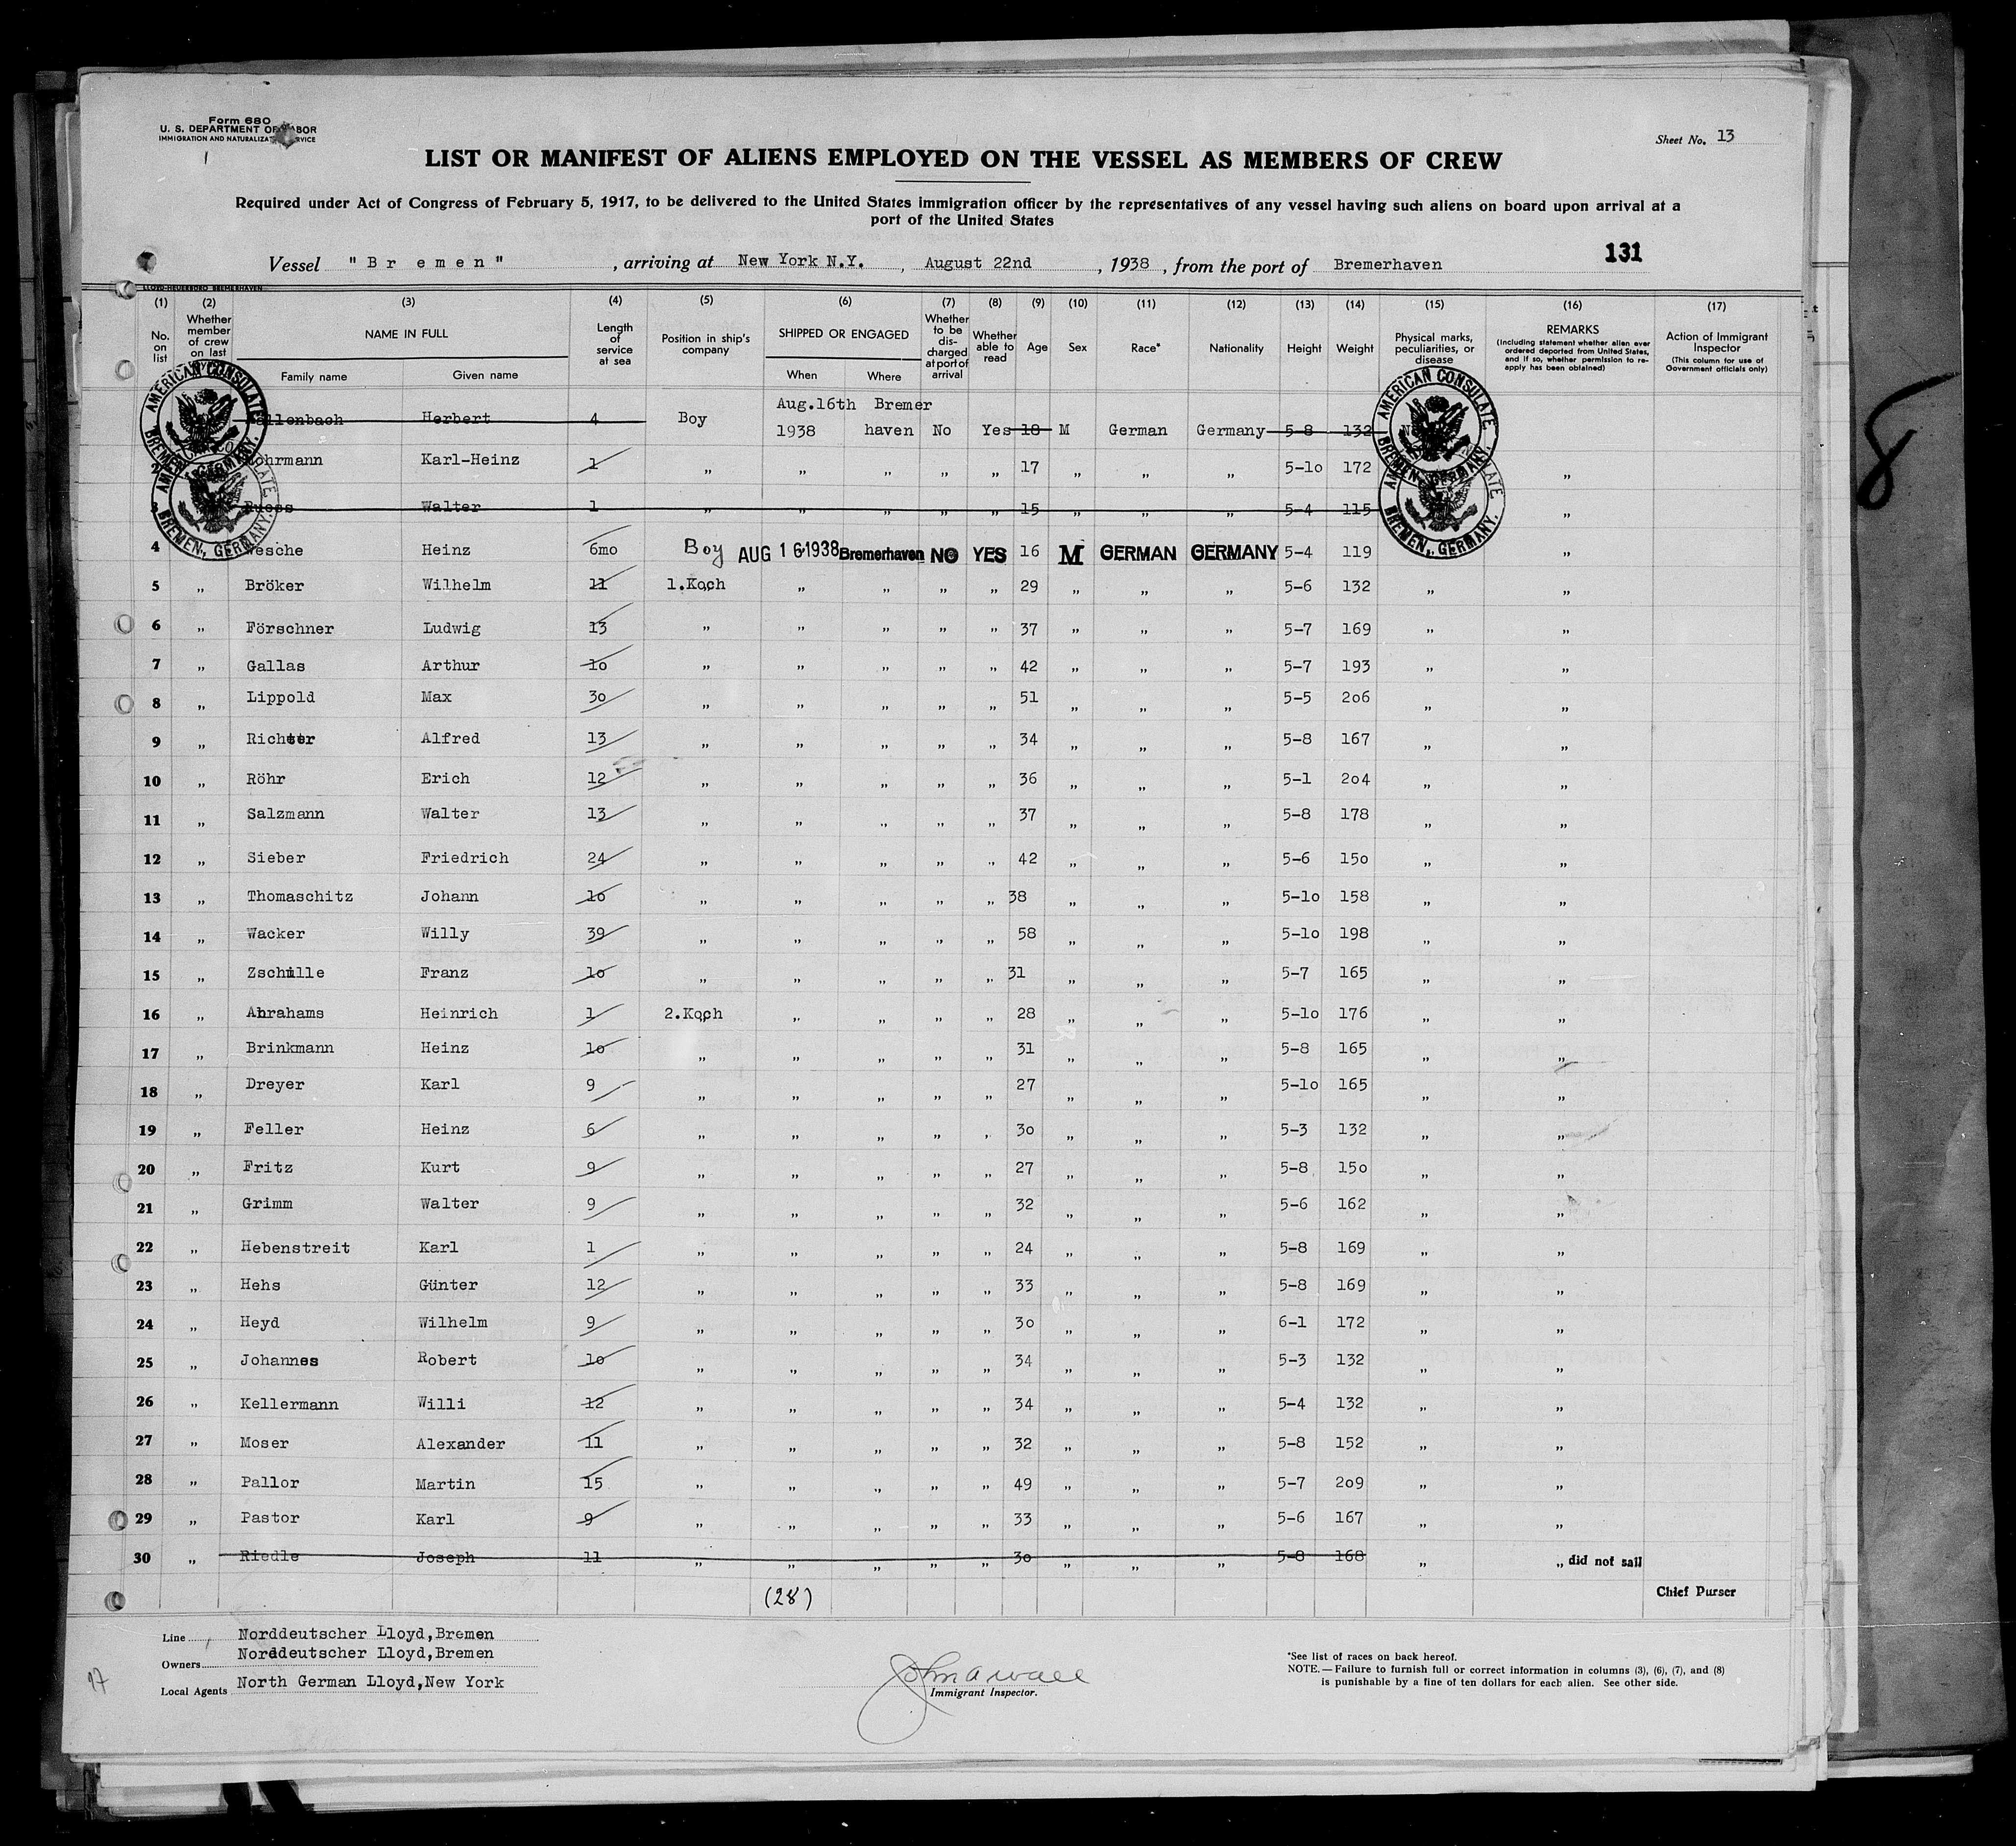 Form 680
U. S. DEPARTMENT OF LABOR
IMMIGRATION AND NATURALIZATION SERVICE
Sheet No. 13
LIST OR MANIFEST OF ALIENS EMPLOYED ON THE VESSEL AS MEMBERS OF CREW
Required under Act of Congress of February 5, 1917, to be delivered to the United States immigration officer by the representatives of any vessel having such aliens on board upon arrival at a
port of the United States
131
Vessel "B r e m e n" , arriving at New York N.Y. , August 22nd , 1938 , from the port of Bremerhaven
LLOYD-HEUERBÜRO BREMERHAVEN
(1) (2) (3) (4) (5) (6) (7) (8) (9) (10) (11) (12) (13) (14) (15) (16) (17)
No. on list Whether member of crew on last NAME IN FULL Family name Given name Length of service at sea Position in ship's company SHIPPED OR ENGAGED When Where Whether to be discharged at port of arrival Whether able to read Age Sex Race* Nationality Height Weight Physical marks, peculiarities, or disease REMARKS (Including statement whether alien ever ordered deported from United States, and if so, whether permission to reapply has been obtained) Action of Immigrant Inspector (This column for use of Government officials only)
AMERICAN CONSULATE BREMEN, GERMANY.
AMERICAN CONSULATE BREMEN, GERMANY.
Herbert 4 Boy Aug.16th 1938 Bremer haven No Yes 18 M German Germany 5-8 132
2 Karl-Heinz 1 „ „ „ „ „ 17 „ „ „ 5-10 172 „
3 Walter 1 „ „ „ „ „ 15 „ „ „ 5-4 115 „
4 Heinz 6mo Boy AUG 16 1938 Bremerhaven NO YES 16 M GERMAN GERMANY 5-4 119 „
5 „ Bröker Wilhelm 11 1.Koch „ „ „ „ 29 „ „ „ 5-6 132 „ „
6 „ Förschner Ludwig 13 „ „ „ „ „ 37 „ „ „ 5-7 169 „ „
7 „ Gallas Arthur 10 „ „ „ „ „ 42 „ „ „ 5-7 193 „ „
8 „ Lippold Max 30 „ „ „ „ „ 51 „ „ „ 5-5 206 „ „
9 „ Richter Alfred 13 „ „ „ „ „ 34 „ „ „ 5-8 167 „ „
10 „ Röhr Erich 12 „ „ „ „ „ 36 „ „ „ 5-1 204 „ „
11 „ Salzmann Walter 13 „ „ „ „ „ 37 „ „ „ 5-8 178 „ „
12 „ Sieber Friedrich 24 „ „ „ „ „ 42 „ „ „ 5-6 150 „ „
13 „ Thomaschitz Johann 10 „ „ „ „ „ 38 „ „ „ 5-10 158 „ „
14 „ Wacker Willy 39 „ „ „ „ „ 58 „ „ „ 5-10 198 „ „
15 „ Zschille Franz 10 „ „ „ „ „ 31 „ „ „ 5-7 165 „ „
16 „ Abrahams Heinrich 1 2.Koch „ „ „ „ 28 „ „ „ 5-10 176 „ „
17 „ Brinkmann Heinz 10 „ „ „ „ „ 31 „ „ „ 5-8 165 „ „
18 „ Dreyer Karl 9 „ „ „ „ „ 27 „ „ „ 5-10 165 „ „
19 „ Feller Heinz 6 „ „ „ „ „ 30 „ „ „ 5-3 132 „ „
20 „ Fritz Kurt 9 „ „ „ „ „ 27 „ „ „ 5-8 150 „ „
21 „ Grimm Walter 9 „ „ „ „ „ 32 „ „ „ 5-6 162 „ „
22 „ Hebenstreit Karl 1 „ „ „ „ „ 24 „ „ „ 5-8 169 „ „
23 „ Hehs Günter 12 „ „ „ „ „ 33 „ „ „ 5-8 169 „ „
24 „ Heyd Wilhelm 9 „ „ „ „ „ 30 „ „ „ 6-1 172 „ „
25 „ Johannes Robert 10 „ „ „ „ „ 34 „ „ „ 5-3 132 „ „
26 „ Kellermann Willi 12 „ „ „ „ „ 34 „ „ „ 5-4 132 „ „
27 „ Moser Alexander 11 „ „ „ „ „ 32 „ „ „ 5-8 152 „ „
28 „ Pallor Martin 15 „ „ „ „ „ 49 „ „ „ 5-7 209 „ „
29 „ Pastor Karl 9 „ „ „ „ „ 33 „ „ „ 5-6 167 „ „
30 „ Riedle Joseph 11 „ „ „ „ „ 30 „ „ „ 5-8 168 „ „ did not sail
(28)
Chief Purser
Line Norddeutscher Lloyd,Bremen
Owners Norddeutscher Lloyd,Bremen
Local Agents North German Lloyd,New York
Immigrant Inspector.
*See list of races on back hereof.
NOTE.—Failure to furnish full or correct information in columns (3), (6), (7), and (8)
is punishable by a fine of ten dollars for each alien. See other side.
97
8